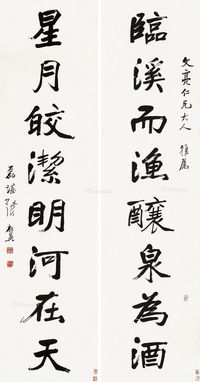 文亮仁兄大人雅屬
臨溪而漁釀泉為酒
星月皎潔明河在天